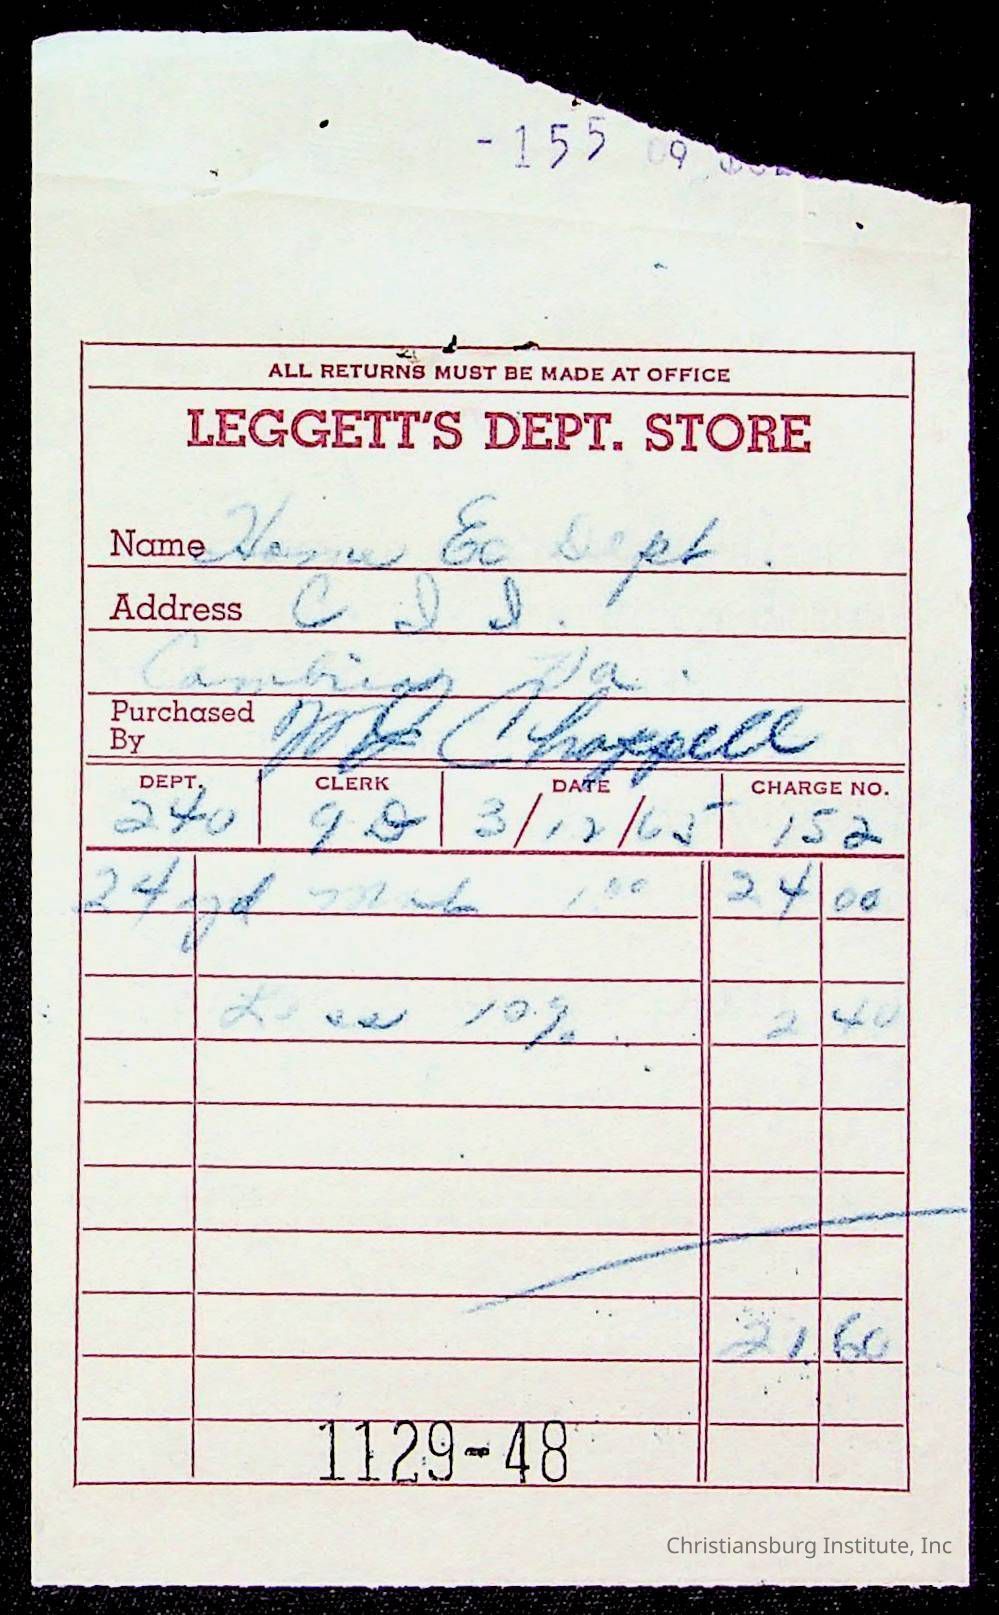 -155 09
ALL RETURNS MUST BE MADE AT OFFICE
LEGGETT'S DEPT. STORE
Name Home Ec Dept.
Address C I I.
Cambria, Va.
Purchased By Chappell
DEPT. CLERK DATE CHARGE NO.
240 9 D 3/12/65 152
24 yd 1.00 24 00
Less 10% 2 40
21 60
1129-48
Christiansburg Institute, Inc